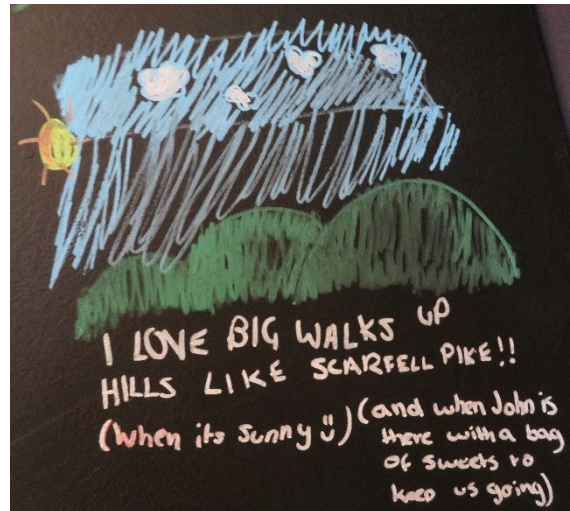 I LOVE BIG WALKS UP
HILLS LIKE SCARFELL PIKE!!
(When its Sunny ü)
(and when John is
there with a bag
of sweets to
keep us going)